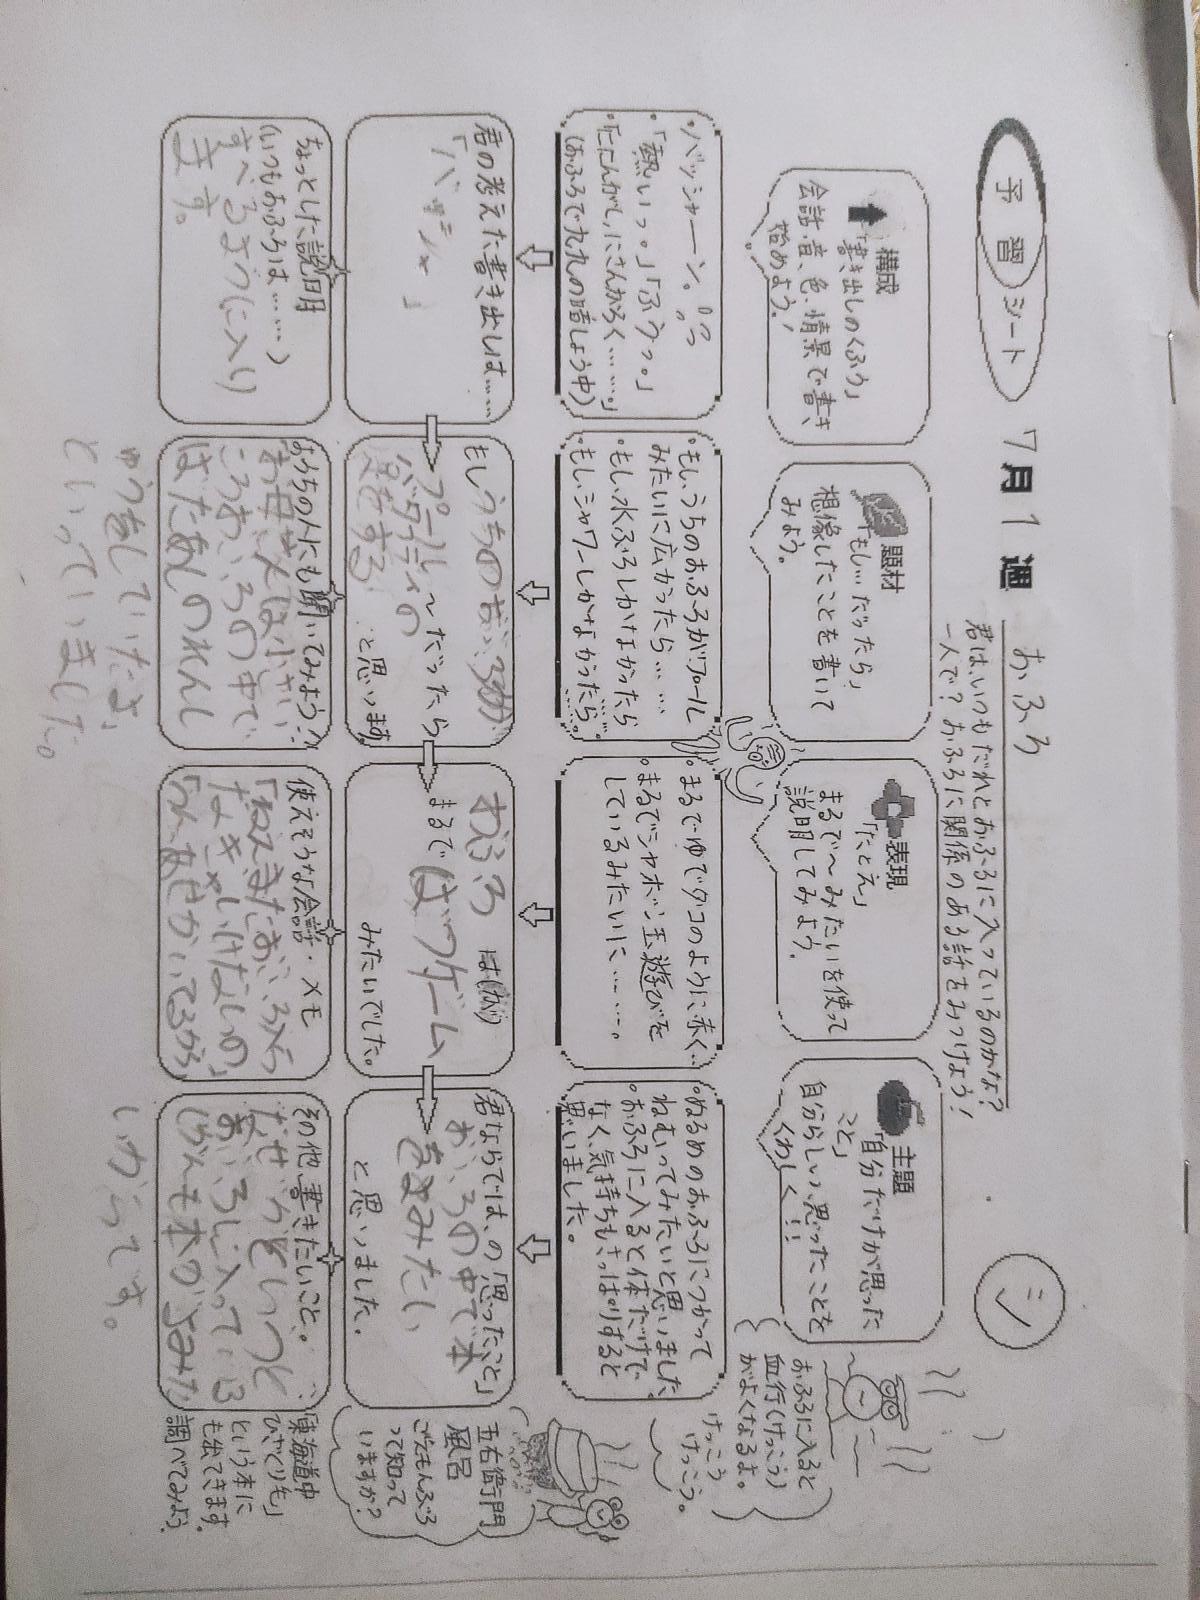 予習シート
7月1週
おふろ
君は、いつもだれとおふろに入っているのかな?
一人で?おふろに関係のある話をみつけよう!
シ
構成
「書き出しのくふう」
会話、音、色、情景で書き
始めよう!
題材
「もし…だったら」
想像したことを書いて
みよう。
表現
「たとえ」
まるで〜みたいを使って
説明してみよう。
主題
「自分だけが思った
こと」
自分らしい思ったことを
くわしく!!
おふろに入ると
血行(けっこう)
がよくなるよ。
けっこう
けっこう。
・バッシャーン。
・「熱いっ。」「ふうっ。」
・「にんがし、にさんがろく………」
(おふろで九九の暗しょう中)
・もし、うちのおふろがプール
みたいに広かったら……
・もし、水ぶろしかなかったら
・もし、シャワーしかなかったら。
・まるでゆでタコのように赤く…
・まるでシャボン玉遊びを
しているみたいに……。
・ぬるめのおふろにつかって
ねむってみたいと思いました
・おふろに入ると体だけで
なく、気持ちもさっぱりすると
思いました。
君の考えた書き出しは……
もしうちのおふろが
プール〜だったら
バタフライの
足をする
と思います。
おふろ は(が)
まるで ばつゲーム
みたいでした。
君ならではの「思ったこと」
おふろの中で本
をよみたい
と思いました。
五右衛門
風呂
ごえもんぶろ
って知って
いますか?
ちょっとした説明
(いつもおふろは……)
すべるように入り
ます。
おうちの人にも聞いてみよう
お母さんは小さい
ころおふろの中で
ばたあしのれんし
ゅうをしていたよ、
といっていました。
使えそうな会話・メモ
その他、書きたいこと。
なぜかというと
おふろに入っている
じかんも本がよみた
いからです。
「東海道中
ひざくり毛」
という本に
も出てきます。
調べてみよう。